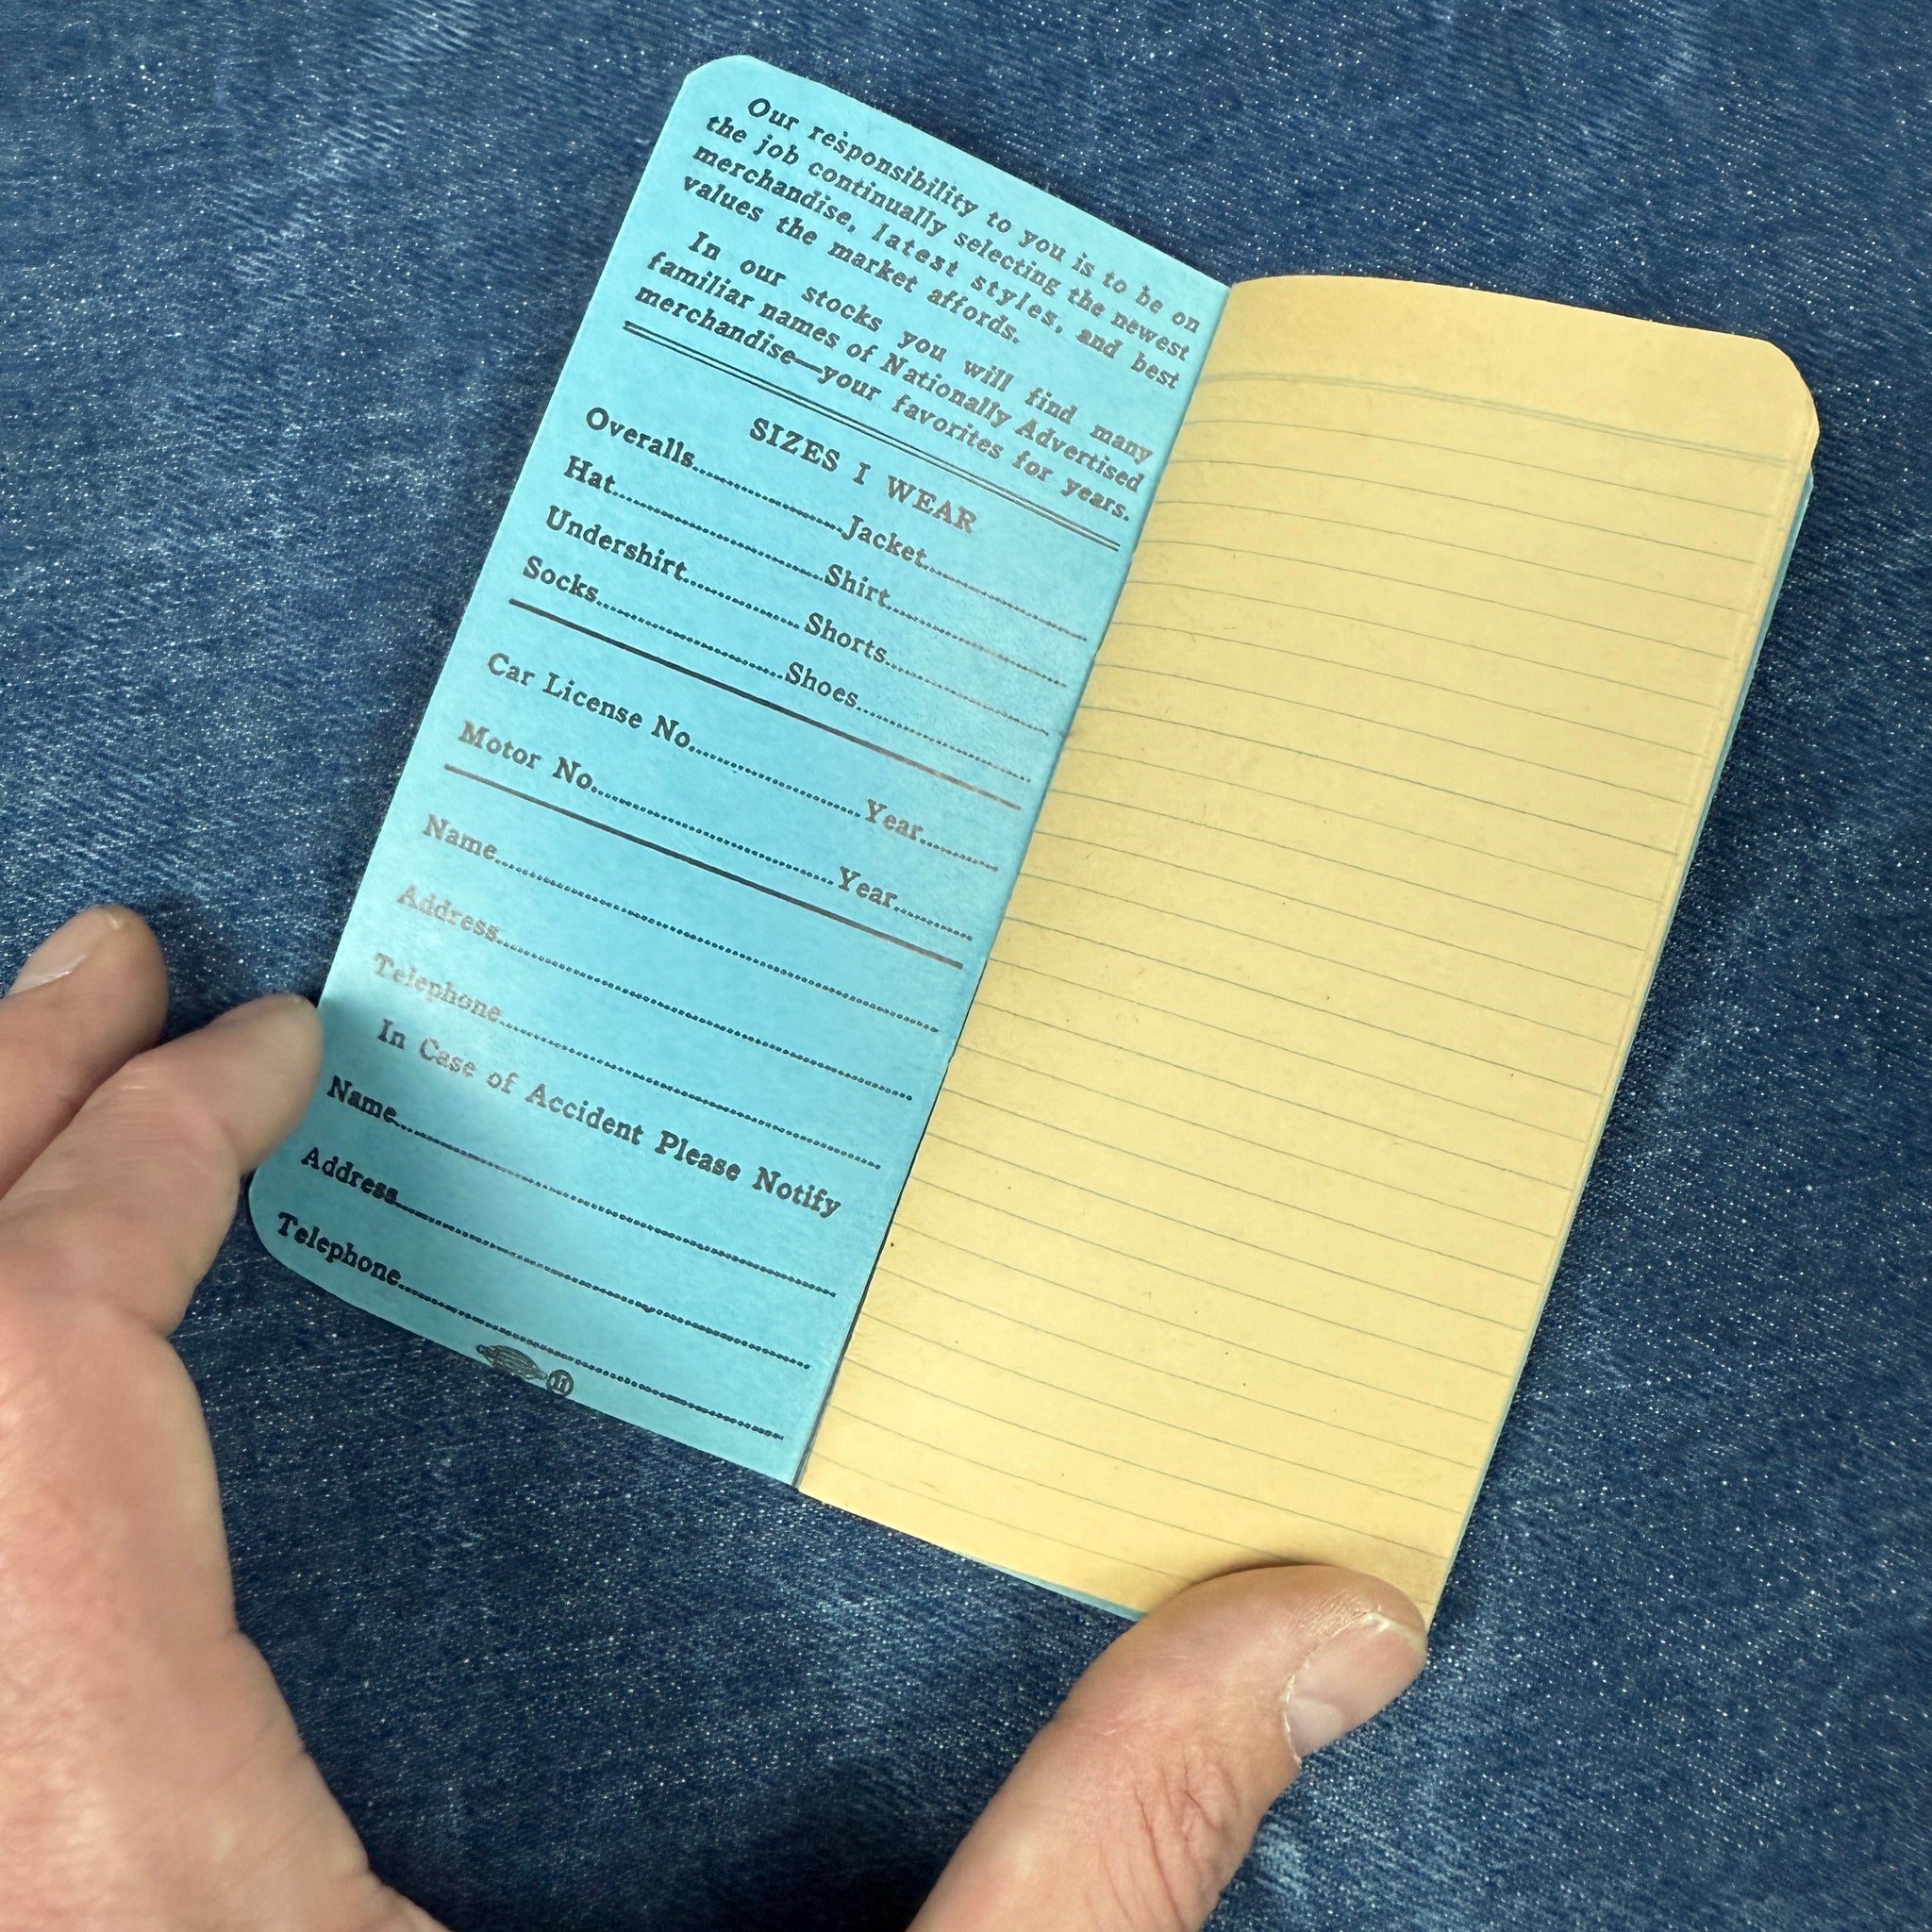 Our responsibility to you is to be on
the job continually selecting the newest
merchandise, latest styles, and best
values the market affords.
In our stocks you will find many
familiar names of Nationally Advertised
merchandise—your favorites for years.
SIZES I WEAR
Overalls..........Jacket..........
Hat..........Shirt..........
Undershirt..........Shorts..........
Socks..........Shoes..........
Car License No..........Year..........
Motor No..........Year..........
Name..........
Address..........
Telephone..........
In Case of Accident Please Notify
Name..........
Address..........
Telephone..........